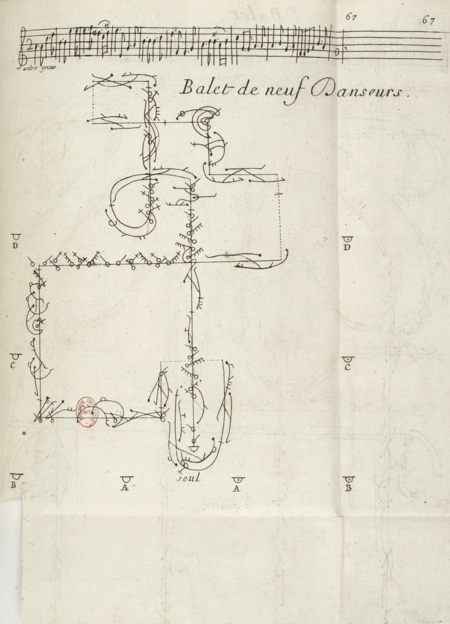 67 67
Balet de neuf Danseurs.
D D
C C
B A A B
seul